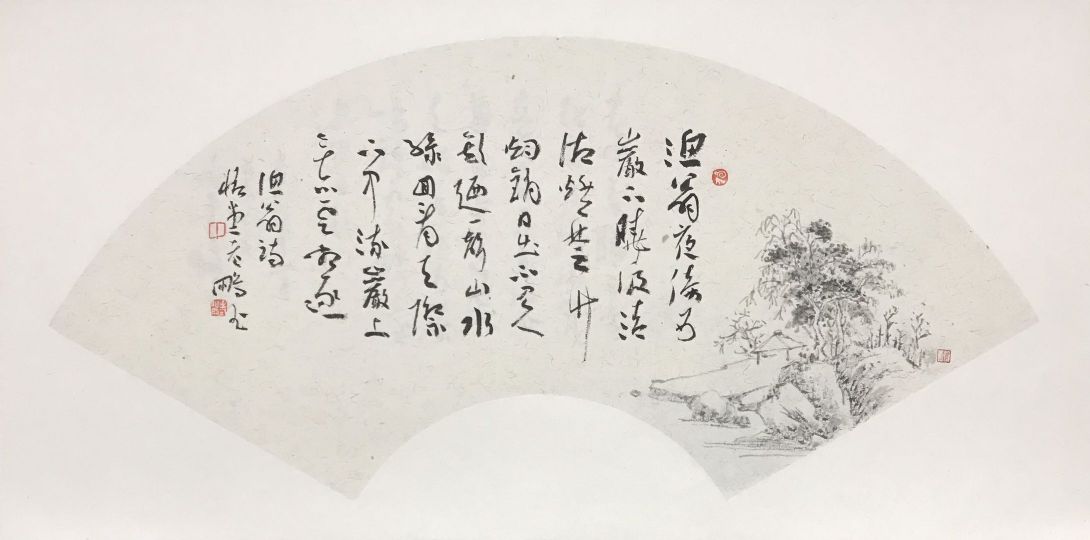 漁翁夜傍西
巖下曉汲清
湘燃楚竹
烟銷日出不見人
欸迺一聲山水
綠回看天際
下中流巖上
無心雲相逐
漁翁詩
堂老鵬书